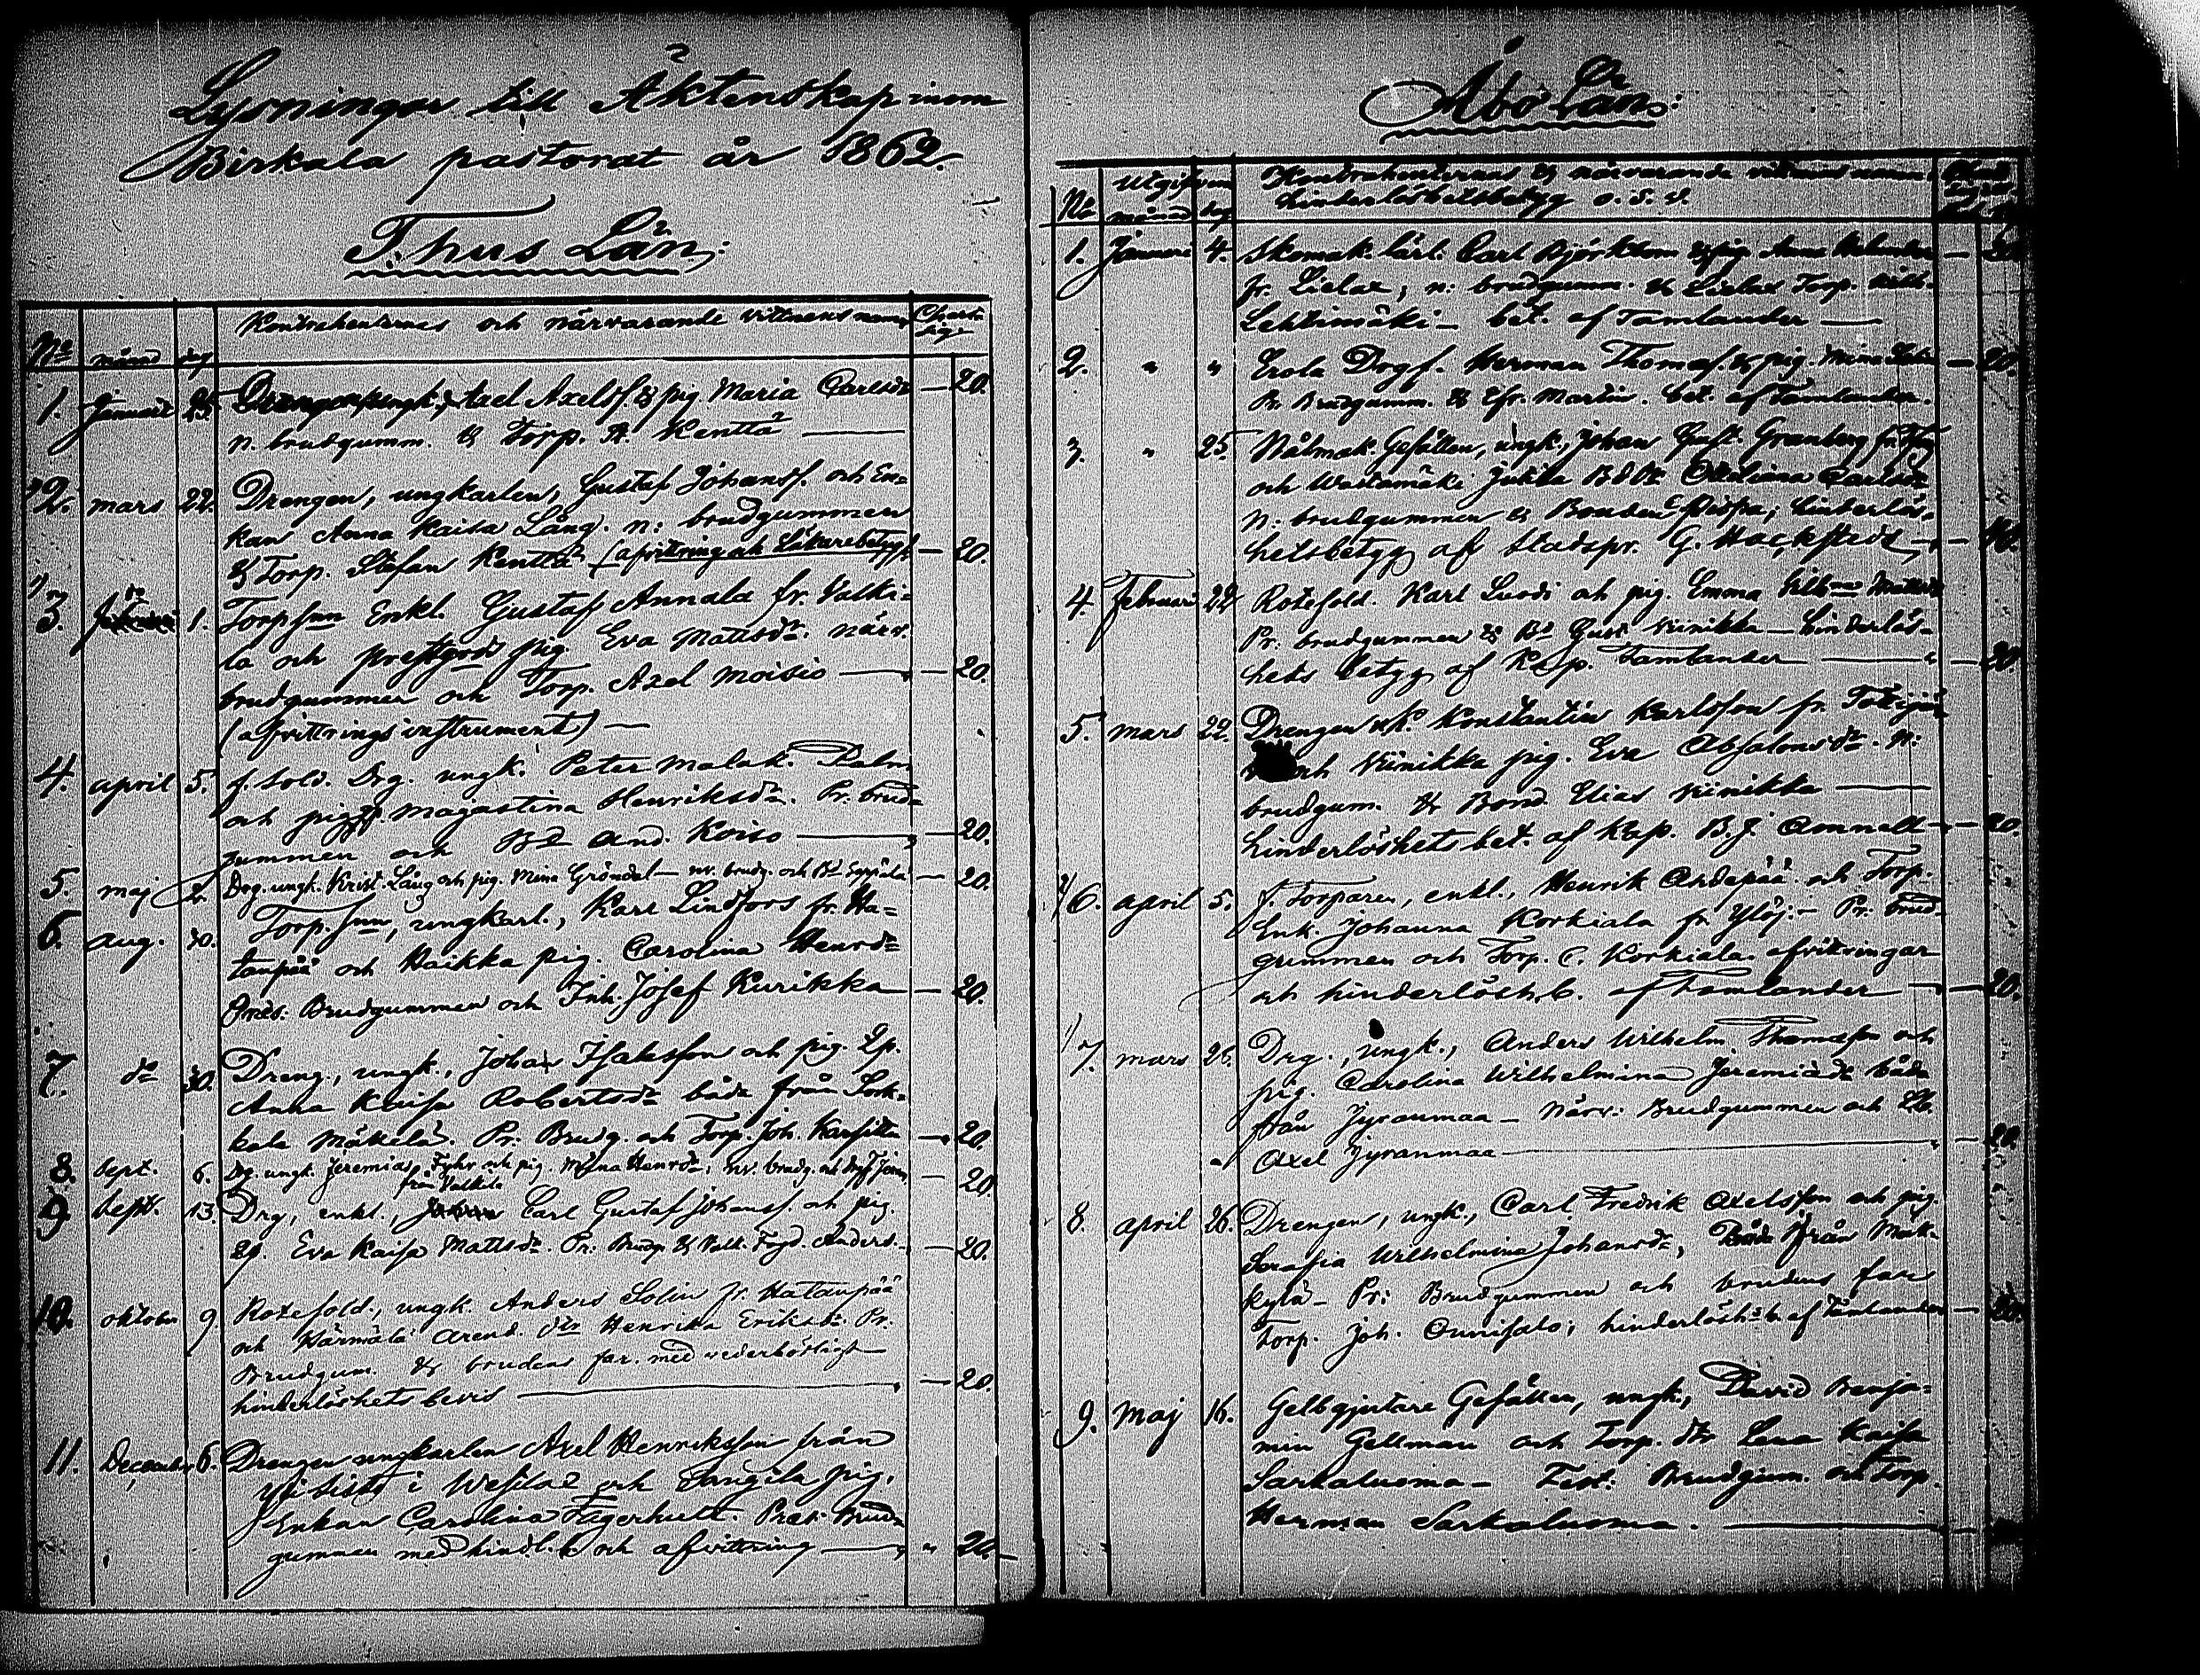 Lysningar till Äktenskap inom
Birkala pastorat år 1862.
T.hus Län:
No månad dag Kontrahenternes och närvarande vittnens namn Charta
1. Januari 25. ungk. Axel Axelss. & pig. Maria Carlsdr — 20.
n. brudgumm. & Torp. A. Kenttä —
2. mars 22. Drengen, ungkarlen, Gustaf Johanss. och En=
kan Anna Kaisa Lång. n: brudgummen
& Torp. Stefan Kenttä (afvittring och Läkarebetyg) — 20.
3. do 1. Torpsson Enkl. Gustaf Annala fr. Valki=
la och prestgårds pig. Eva Mattsdr. närv.
brudgummen och Torp. Axel Moisio — 20.
(afvittrings instrument) —
4. april 5. f. Sold. Drg. ungk. Peter Malak. Palm
och pig. Magastina Henriksdr. Pr. brud=
gummen och Bd And. Koiso — 20.
5. maj Drg. ungk. Krist. Lång och pig. Mina Gröndal — nv. brudg. och Bd Eppilä — 20.
6. aug. 30. Torp. son, ungkarl., Karl Lindfors fr. Ha=
tanpää och Haikka pig. Carolina Henrdr
Pres: Brudgummen och Inh. Josef Kurikka — 20.
7. do 30. Dreng., ungk., Johan Isaksson och pig. Ep.
Anna Kaisa Robertsdr båda från Sork=
kala Mäkelä. Pr. Brudg. och Torp. Joh. Kassila — 20.
8. Sept. 6. Dr. ungk. Jeremias Fyhr och pig. Mina Henrdr; nv. brudg. och — 20
från Valkila
9 Sept. 13. Drg, enkl., Carl Gustaf Johanss. och pig.
Ep. Eva Kaisa Mattsdr. Pr: Brudg. & Anders. — 20.
10. oktober 9 Rotesold., ungk. Anders Solin fr. Hatanpää
och Härmälä Arend. dtr Henrika Eriksdr. Pr.
Brudgum. & brudens far. med vederbörligt
hinderlöshets bevis — 20.
11. December 6. Drengen ungkarlen Axel Henriksson från
i Westoe och Sangila pig.
Enkan Carolina Fagerhult. Præs. Brud=
gummen med hindl. b. och afvittring — " 20.
Åbo Län:
No Utgifven månad dag Kontrahenternas & närvarande vittnens namn
hinderlöshetsbetyg o. s. v.
1. Januari 4. Skomak. lärl. Carl Björkbom & pig. Anna — 20
fr. Lielax; n: brudgumm. & Lielax Torp. Wilh.
Lehtimäki — bet. af Tamlander —
2. " " Erola Drgf. Herman Thomass. & pig. Mina — 20.
Pr. Brudgumm. & Efr. Martin. bet. af Tamlander.
3. " 25. Nålmak. Gesällen, ungk., Johan Gust. Granberg
och Wastamäki Jutila Bd dtr Carlsdr
n: brudgummen & Bonden hinderlös=
hetsbetyg af Stadspr. G. Hackstedt — 40.
4. Februari 22 Rotesold. Karl Luodi och pig. Emma Wilh:na Mattsdr
Pr. brudgummen & Bd Gust. Viinikka — hinderlös=
hets betyg af Kap. Tamlander — 20
5. mars 22. Drengen uk. Konstantin Karlsson fr.
och Viinikka pig. Eva Absalonsdr. n:
brudgum. & Bond. Elias Viinikka —
hinderlöshets bet. af Kap. B. J. — 20.
6. april 5. f. Torparen, enkl., Henrik och Torp.
Enk. Johanna Korkiala fr. Ylöj: — Pr: brud=
gummen och Torp. C. Korkiala. afvittringar
och hinderlösh. b. af Tamlander — 20.
7. mars 25. Drg., ungk., Anders Wilhelm Thomasson och
pig. Carolina Wilhelmina Jeremiædr båda
från Jyranmaa — Närv: Brudgummen och
Axel Jyranmaa — 20.
8. april 26. Drengen, ungk., Carl Fredrik Axelsson och pig.
Serafia Wilhelmina Johansdr, Båda från Mak=
kylä — Pr: Brudgummen och brudens far
Torp. Joh. Ounisalo; hinderlösh:s b. af Tamlander — 20.
9. Maj 16. Gelbgjutare Gesällen, ungk., David Benja=
min Gellman och Torp. dtr Lena Kaisa
Sarkaluoma — Test: Brudgum. och Torp.
Herman Sarkaluoma. —